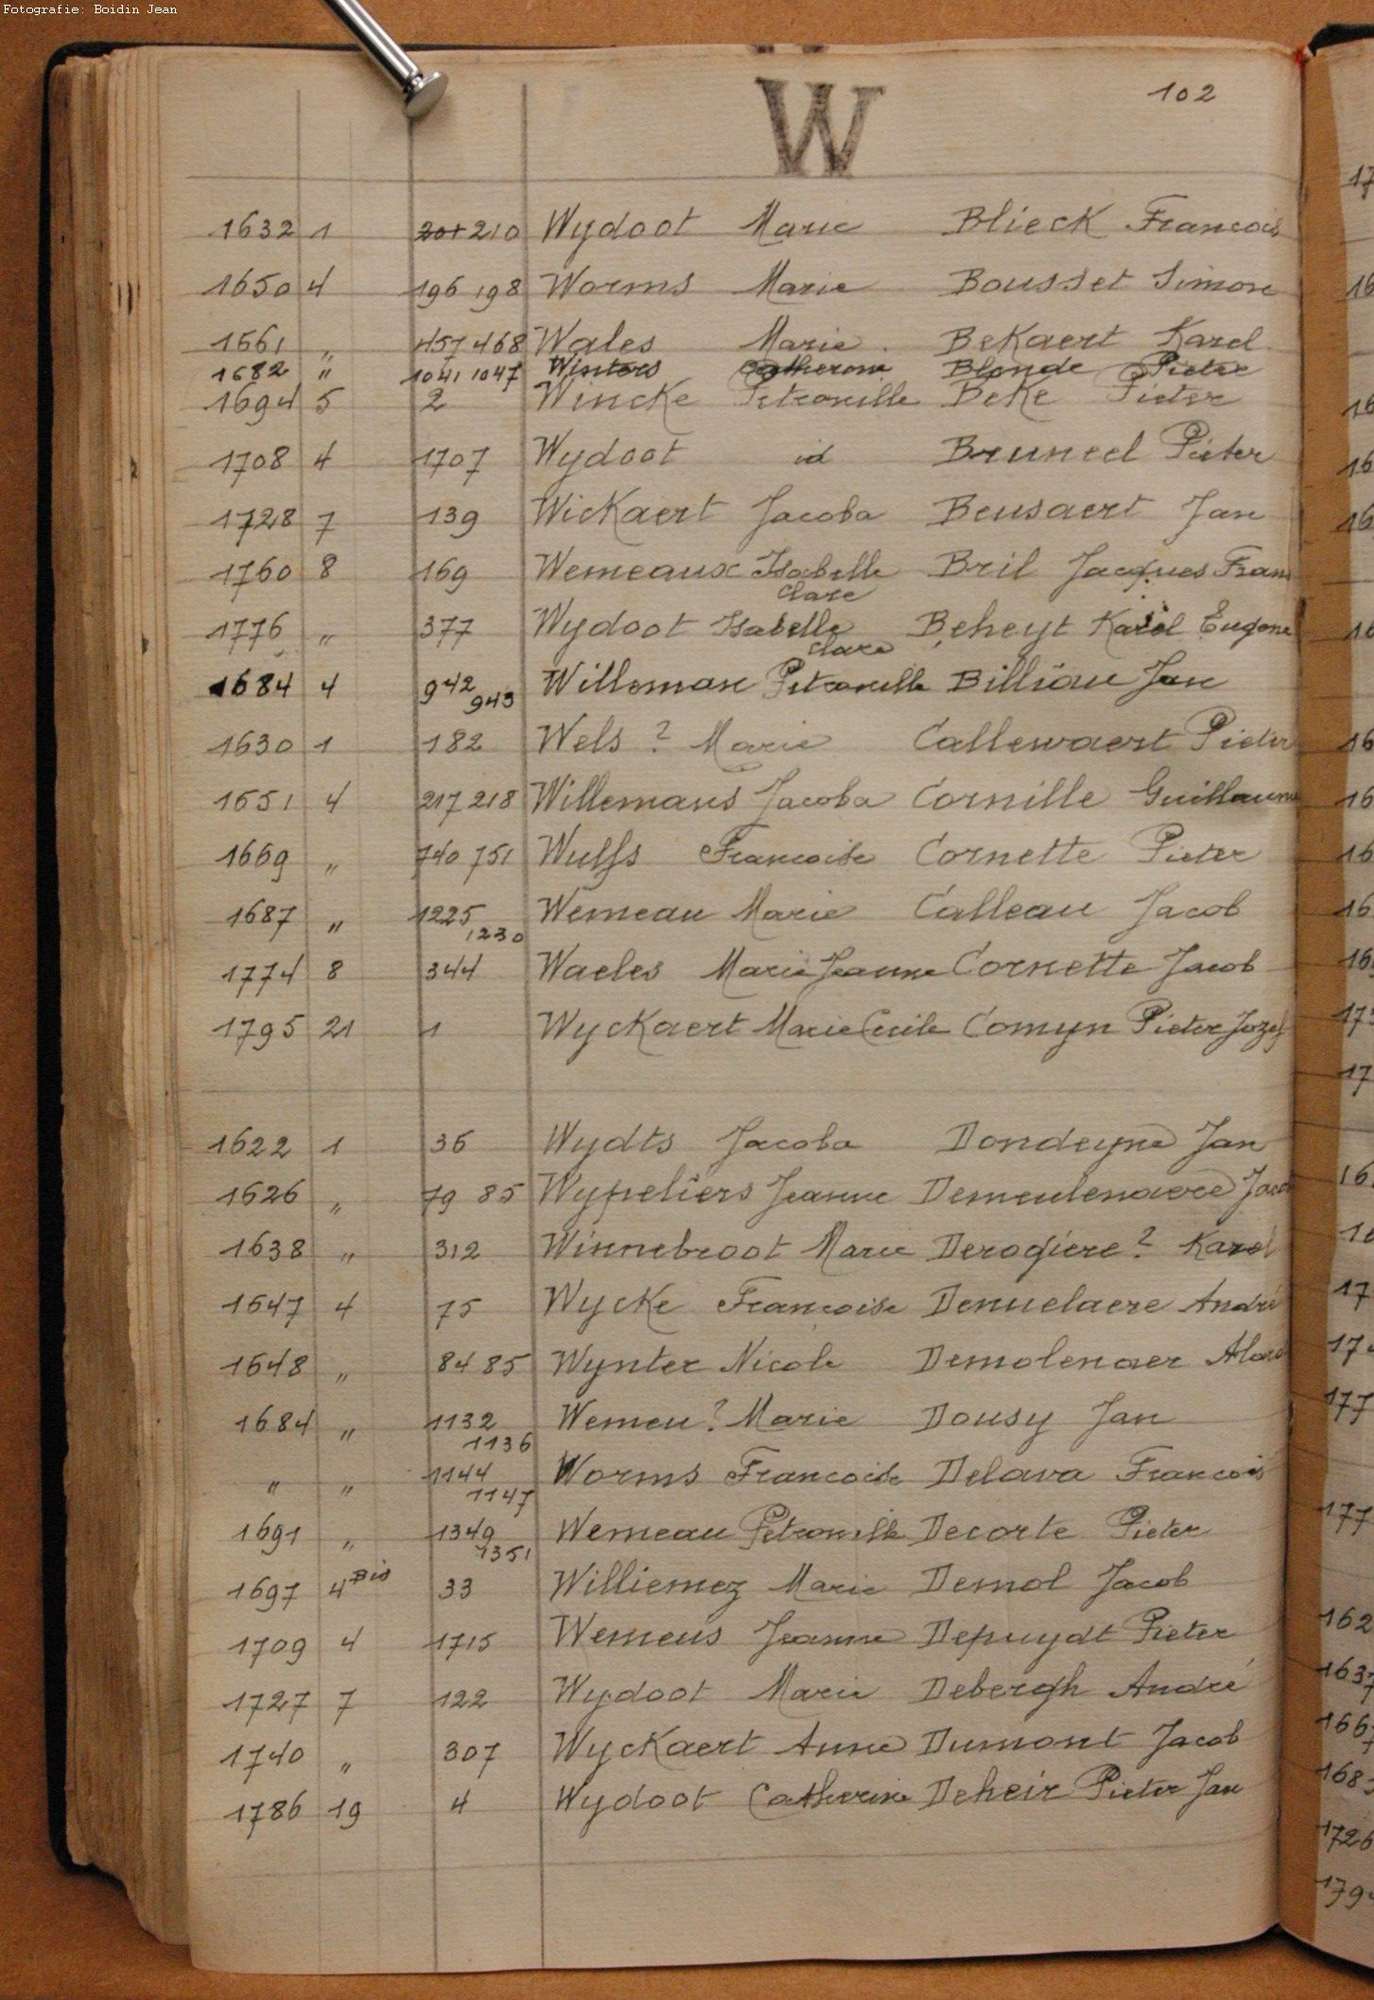 Fotografie: Boidin Jean
102
W
1632 1 201 210 Wydoot Marie Blieck Francois
1650 4 196 198 Worms Marie Bousset Simon
1661 " 457 468 Wales Marie Bekaert Karel
1682 " 1041 1047 Winters Catherine Blonde Pieter
1694 5 2 Wincke Petronille Beke Pieter
1708 4 1707 Wydoot id Bruneel Pieter
1728 7 139 Wickaert Jacoba Beusaert Jan
1760 8 169 Wemeaux Isabelle Bril Jacques Frans
Clare
1776 " 377 Wydoot Isabelle Beheyt Karel Eugene
Clare
1684 4 942 Willeman Petronille Billiau Jan
943
1630 1 182 Wels ? Marie Callewaert Pieter
1651 4 217 218 Willemans Jacoba Cornille Guillaume
1669 " 740 751 Wulfs Francoise Cornette Pieter
1687 " 1225 Wemeau Marie Calleau Jacob
1230
1774 8 344 Waeles Marie Jeanne Cornette Jacob
1795 21 1 Wyckaert Marie Cecile Comyn Pieter Jozef
1622 1 36 Wydts Jacoba Dondeyne Jan
1626 " 79 85 Wypeliers Jeanne Demeulenaere
1638 " 312 Winnebroot Marie Derogiere ? Karel
1647 4 75 Wycke Françoise Denuelaere André
1648 " 84 85 Wynter Nicole Demolenaer
1684 " 1132 Wemeu ? Marie Dousy Jan
1136
" " 1144 Worms Francoise Delava Francois
1147
1691 " 1349 Wemeau Petronille Decorte Pieter
1351
1697 4 Bis 33 Williemez Marie Demol Jacob
1709 4 1715 Wemeus Jeanne Depuydt Pieter
1727 7 122 Wydoot Marie Debergh André
1740 " 307 Wyckaert Anne Dumont Jacob
1786 19 4 Wydoot Catherine Deheir Pieter Jan